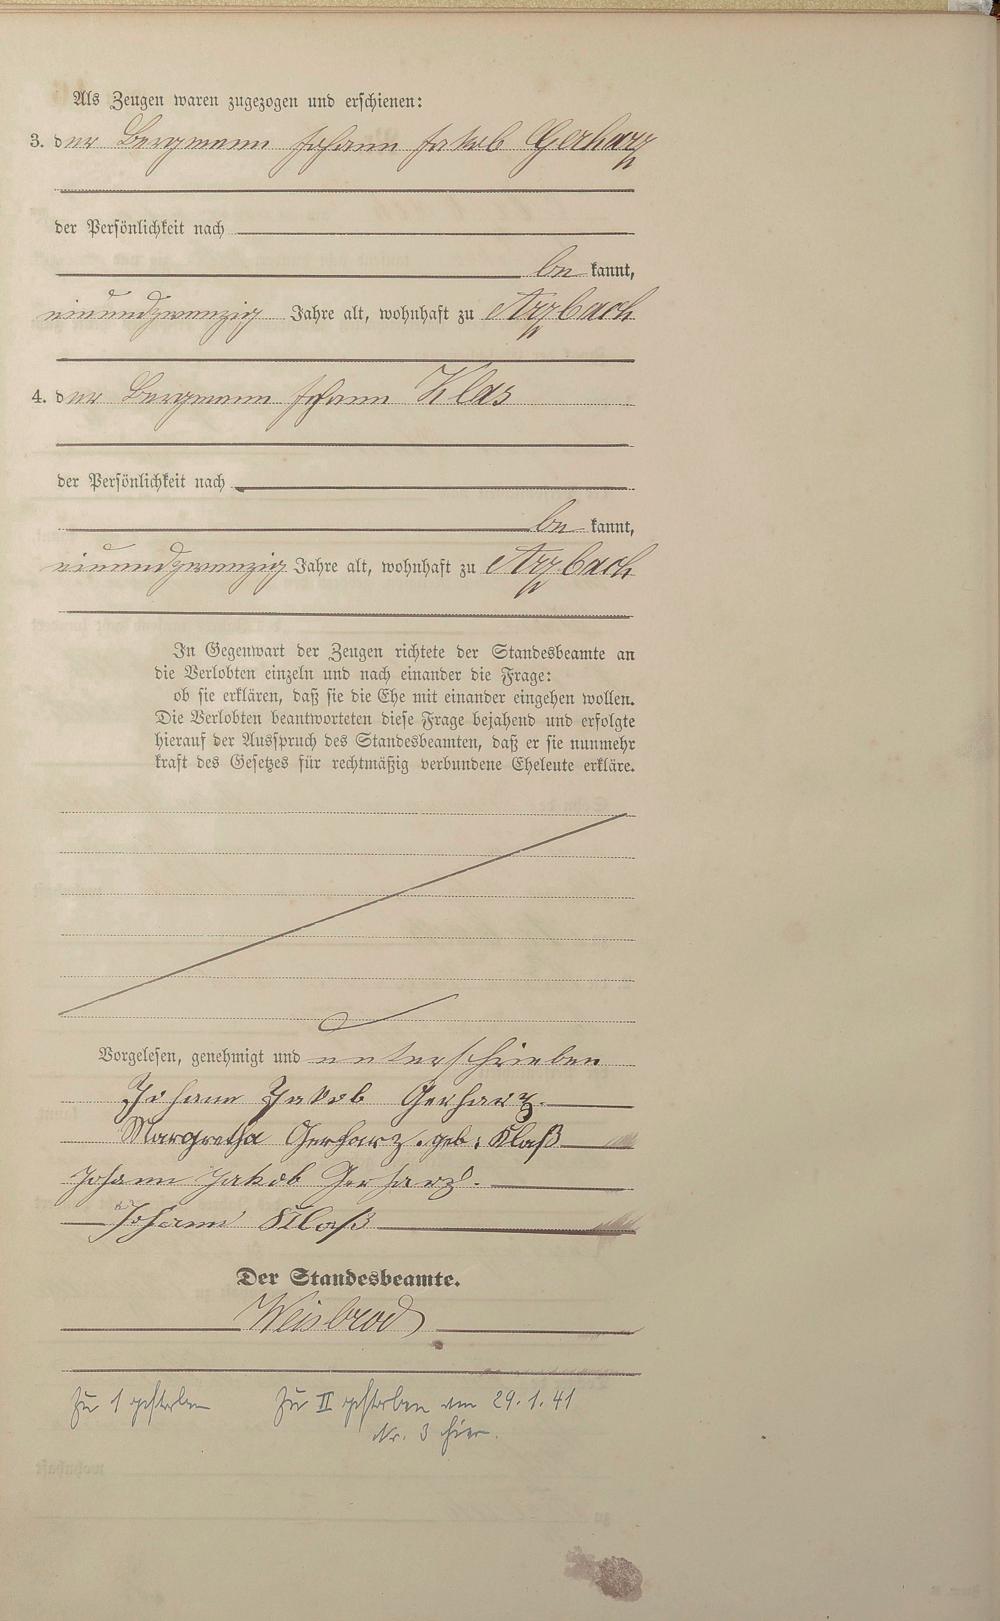 Als Zeugen waren zugezogen und erschienen:
3. der Bergmann Johann Jakob Gerharz
der Persönlichkeit nach
be kannt,
neunundzwanzig Jahre alt, wohnhaft zu Arzbach
4. der Bergmann Johann Klas
der Persönlichkeit nach
be kannt,
neunundzwanzig Jahre alt, wohnhaft zu Arzbach
In Gegenwart der Zeugen richtete der Standesbeamte an
die Verlobten einzeln und nach einander die Frage:
ob sie erklären, daß sie die Ehe mit einander eingehen wollen.
Die Verlobten beantworteten diese Frage bejahend und erfolgte
hierauf der Ausspruch des Standesbeamten, daß er sie nunmehr
kraft des Gesetzes für rechtmäßig verbundene Eheleute erkläre.
Vorgelesen, genehmigt und unterschrieben
Johann Jakob Gerharz.
Margretha Gerharz. geb: Klaß
Johann Jakob Gerharz.
Johann Klaß
Der Standesbeamte.
Weisbrod
Zu 1 gestorben Zu II gestorben am 29.1.41
Nr. 3 hier.